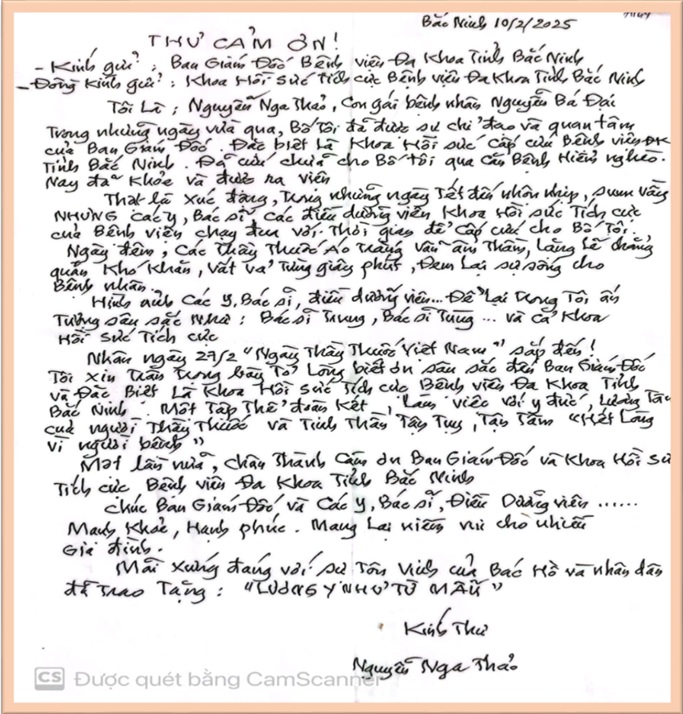 Bắc Ninh 10/2/2025
THƯ CẢM ƠN!
- Kính gửi: Ban Giám Đốc Bệnh viện Đa Khoa Tỉnh Bắc Ninh
- Đồng Kính gửi: Khoa Hồi Sức Tích cực Bệnh viện Đa Khoa Tỉnh Bắc Ninh
Tôi Là; Nguyễn Nga Thảo, Con gái bệnh nhân Nguyễn Bá Đại
Trong những ngày vừa qua, Bố Tôi đã được sự chỉ đạo và quan tâm
của Ban Giám Đốc. Đặc biệt Là Khoa Hồi sức Cấp cứu Bệnh viện ĐK
Tỉnh Bắc Ninh. Đã cứu chữa cho Bố tôi qua Căn Bệnh Hiểm nghèo.
Nay đã Khỏe và được ra viện
Thật là Xúc động, Trong những ngày Tết đến nhộn nhịp, sum vầy
NHƯNG các y, Bác sĩ, các điều dưỡng viên Khoa Hồi sức Tích cực
của Bệnh viện chạy đua với Thời gian để Cấp cứu cho Bố Tôi.
Ngày đêm, Các Thầy Thuốc Áo Trắng vẫn âm Thầm, Lặng Lẽ chẳng
quản Khó Khăn, vất vả Từng giây phút, Đem Lại sự sống cho
Bệnh nhân.
Hình ảnh Các Y, Bác sĩ, điều dưỡng viên... Để Lại Trong Tôi ấn
Tượng sâu sắc Như: Bác sĩ Trung, Bác sĩ Tùng ... và cả Khoa
Hồi Sức Tích cực
Nhân ngày 27/2 "Ngày Thầy Thuốc Việt Nam" sắp đến!
Tôi Xin Trân Trọng bày Tỏ Lòng biết ơn sâu sắc đến Ban Giám Đốc
và Đặc Biệt Là Khoa Hồi Sức Tích cực Bệnh viện Đa Khoa Tỉnh
Bắc Ninh. Một Tập Thể đoàn Kết, Làm việc với y đức, Lương Tâ
của người Thầy Thuốc và Tinh Thần Tận Tụy, Tận Tâm "Hết Lòng
vì người bệnh"
Một lần nữa, chân Thành Cảm ơn Ban Giám Đốc và Khoa Hồi sứ
Tích cực Bệnh viện Đa Khoa Tỉnh Bắc Ninh
Chúc Ban Giám Đốc và Các y, Bác sĩ, Điều Dưỡng viên ......
Mạnh Khỏe, Hạnh phúc. Mang Lại niềm vui cho nhiều
Gia đình.
Mãi Xứng đáng với sự Tôn Vinh của Bác Hồ và nhân dân
đã Trao Tặng: "LƯƠNG Y NHƯ TỪ MẪU"
Kính Thư
Nguyễn Nga Thảo
CS Được quét bằng CamScanner